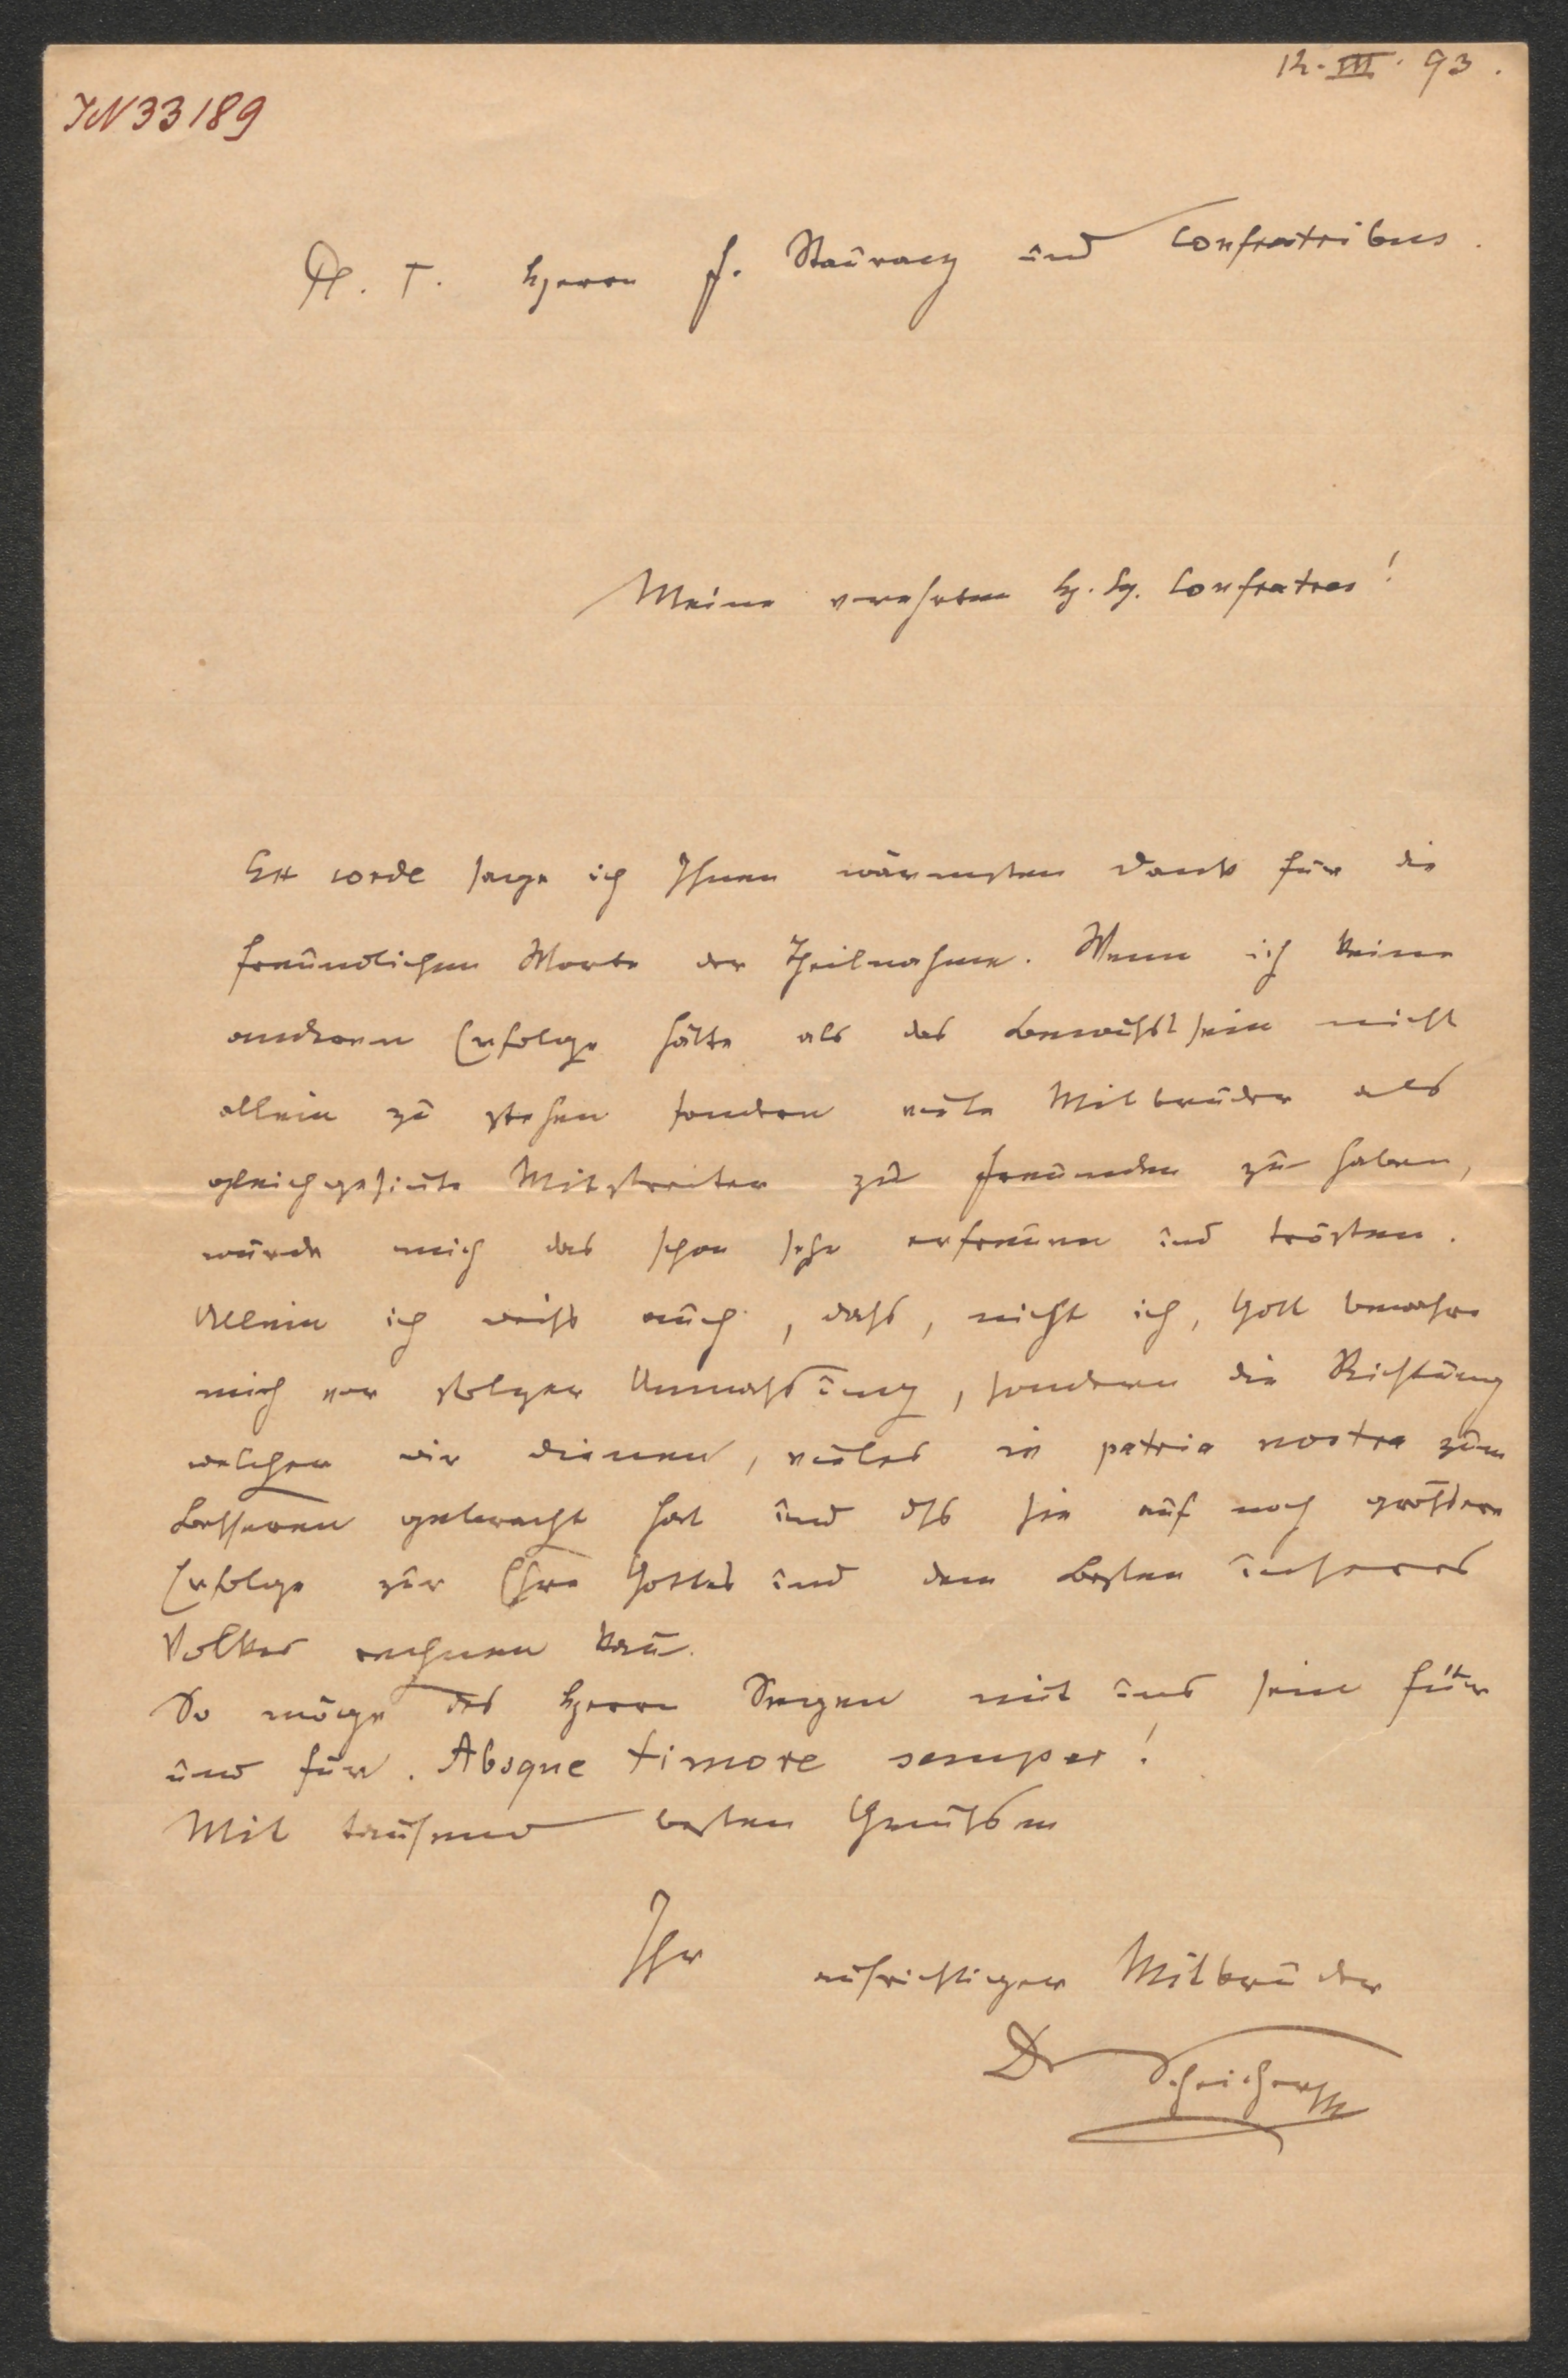 12. III. 93.
IN 33189
P. T. Herrn F. Stauracz und Confratribus.
Meine verehrten H. H. Confratres!
Ex corde sage ich Ihnen wärmsten Dank für die
freundlichen Worte der Theilnahme. Wenn ich keine
anderen Erfolge hätte als das Bewußtsein nicht
allein zu stehen sondern viele Mitbrüder als
gleichgesinte Mitstreiter zu Freunden zu haben,
würde mich das schon sehr erfreuen und trösten.
Allein ich weiß auch, daß, nicht ich, Gott bewahre
mich vor stolzer Anmaßung, sondern die Richtung
welcher wir dienen, vieles in patria nostra zum
Besseren gebracht hat und dß sie auf noch größere
Erfolge zur Ehre Gottes und dem Besten unseres
Volkes rechnen kan.
So möge des Herrn Segen mit uns sein für
und für. Absque timore semper!
Mit tausend besten Grüßen
Ihr aufrichtiger Mitbruder
Dr Scheicher